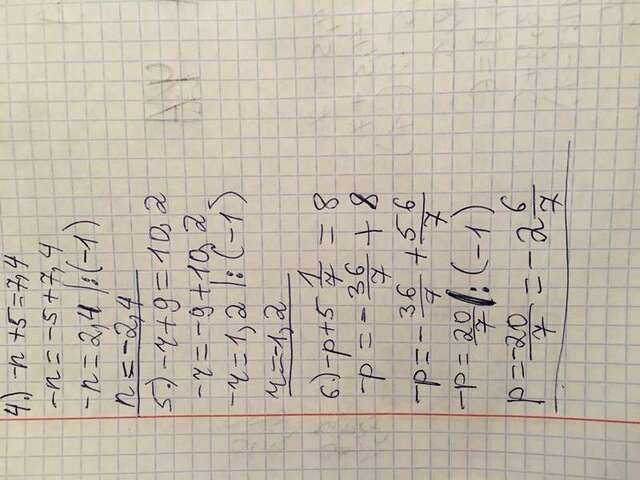 4.) -n+5=7,4
-n=-5+7,4
-n=2,4 |:(-1)
n=-2,4
5.) -r+9=10,2
-r=-9+10,2
-r=1,2 |:(-1)
r=-1,2
6.) -p+5 1/7 = 8
-p = -36/7 + 8
-p = -36/7 + 56/7
-p = 20/7 |:(-1)
p = -20/7 = -2 6/7